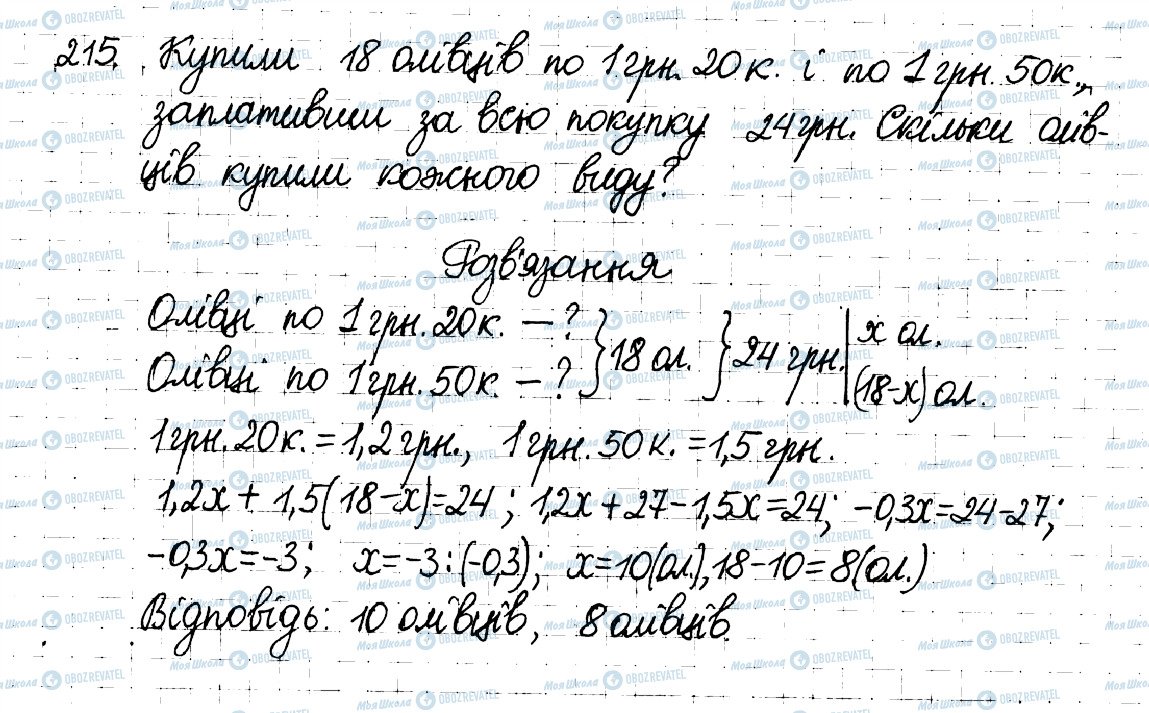 215. Купили 18 олівців по 1 грн. 20 к. і по 1 грн. 50 к.,
заплативши за всю покупку 24 грн. Скільки олів-
ців купили кожного виду?
Розв'язання
Олівці по 1 грн. 20 к. — ? } 18 ол. } 24 грн. | x ол.
Олівці по 1 грн. 50 к. — ? (18-x) ол.
1 грн. 20 к. = 1,2 грн., 1 грн. 50 к. = 1,5 грн.
1,2x + 1,5(18-x)=24; 1,2x+27-1,5x=24; -0,3x=24-27;
-0,3x=-3; x=-3:(-0,3); x=10(ол.), 18-10=8(ол.)
Відповідь: 10 олівців, 8 олівців.